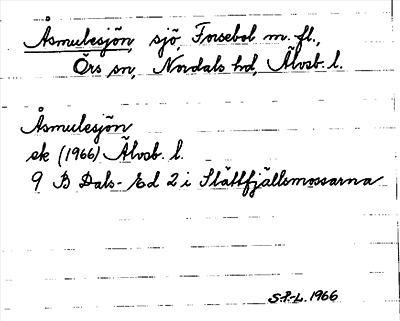 Åsmulesjön, sjö, Forsebol m. fl.,
Örs sn, Nordals hd, Älvsb. l.
Åsmulesjön
ek (1966) Älvsb. l.
9 B Dals-Ed 2 i Slättfjällsmossarna
S-P-L. 1966